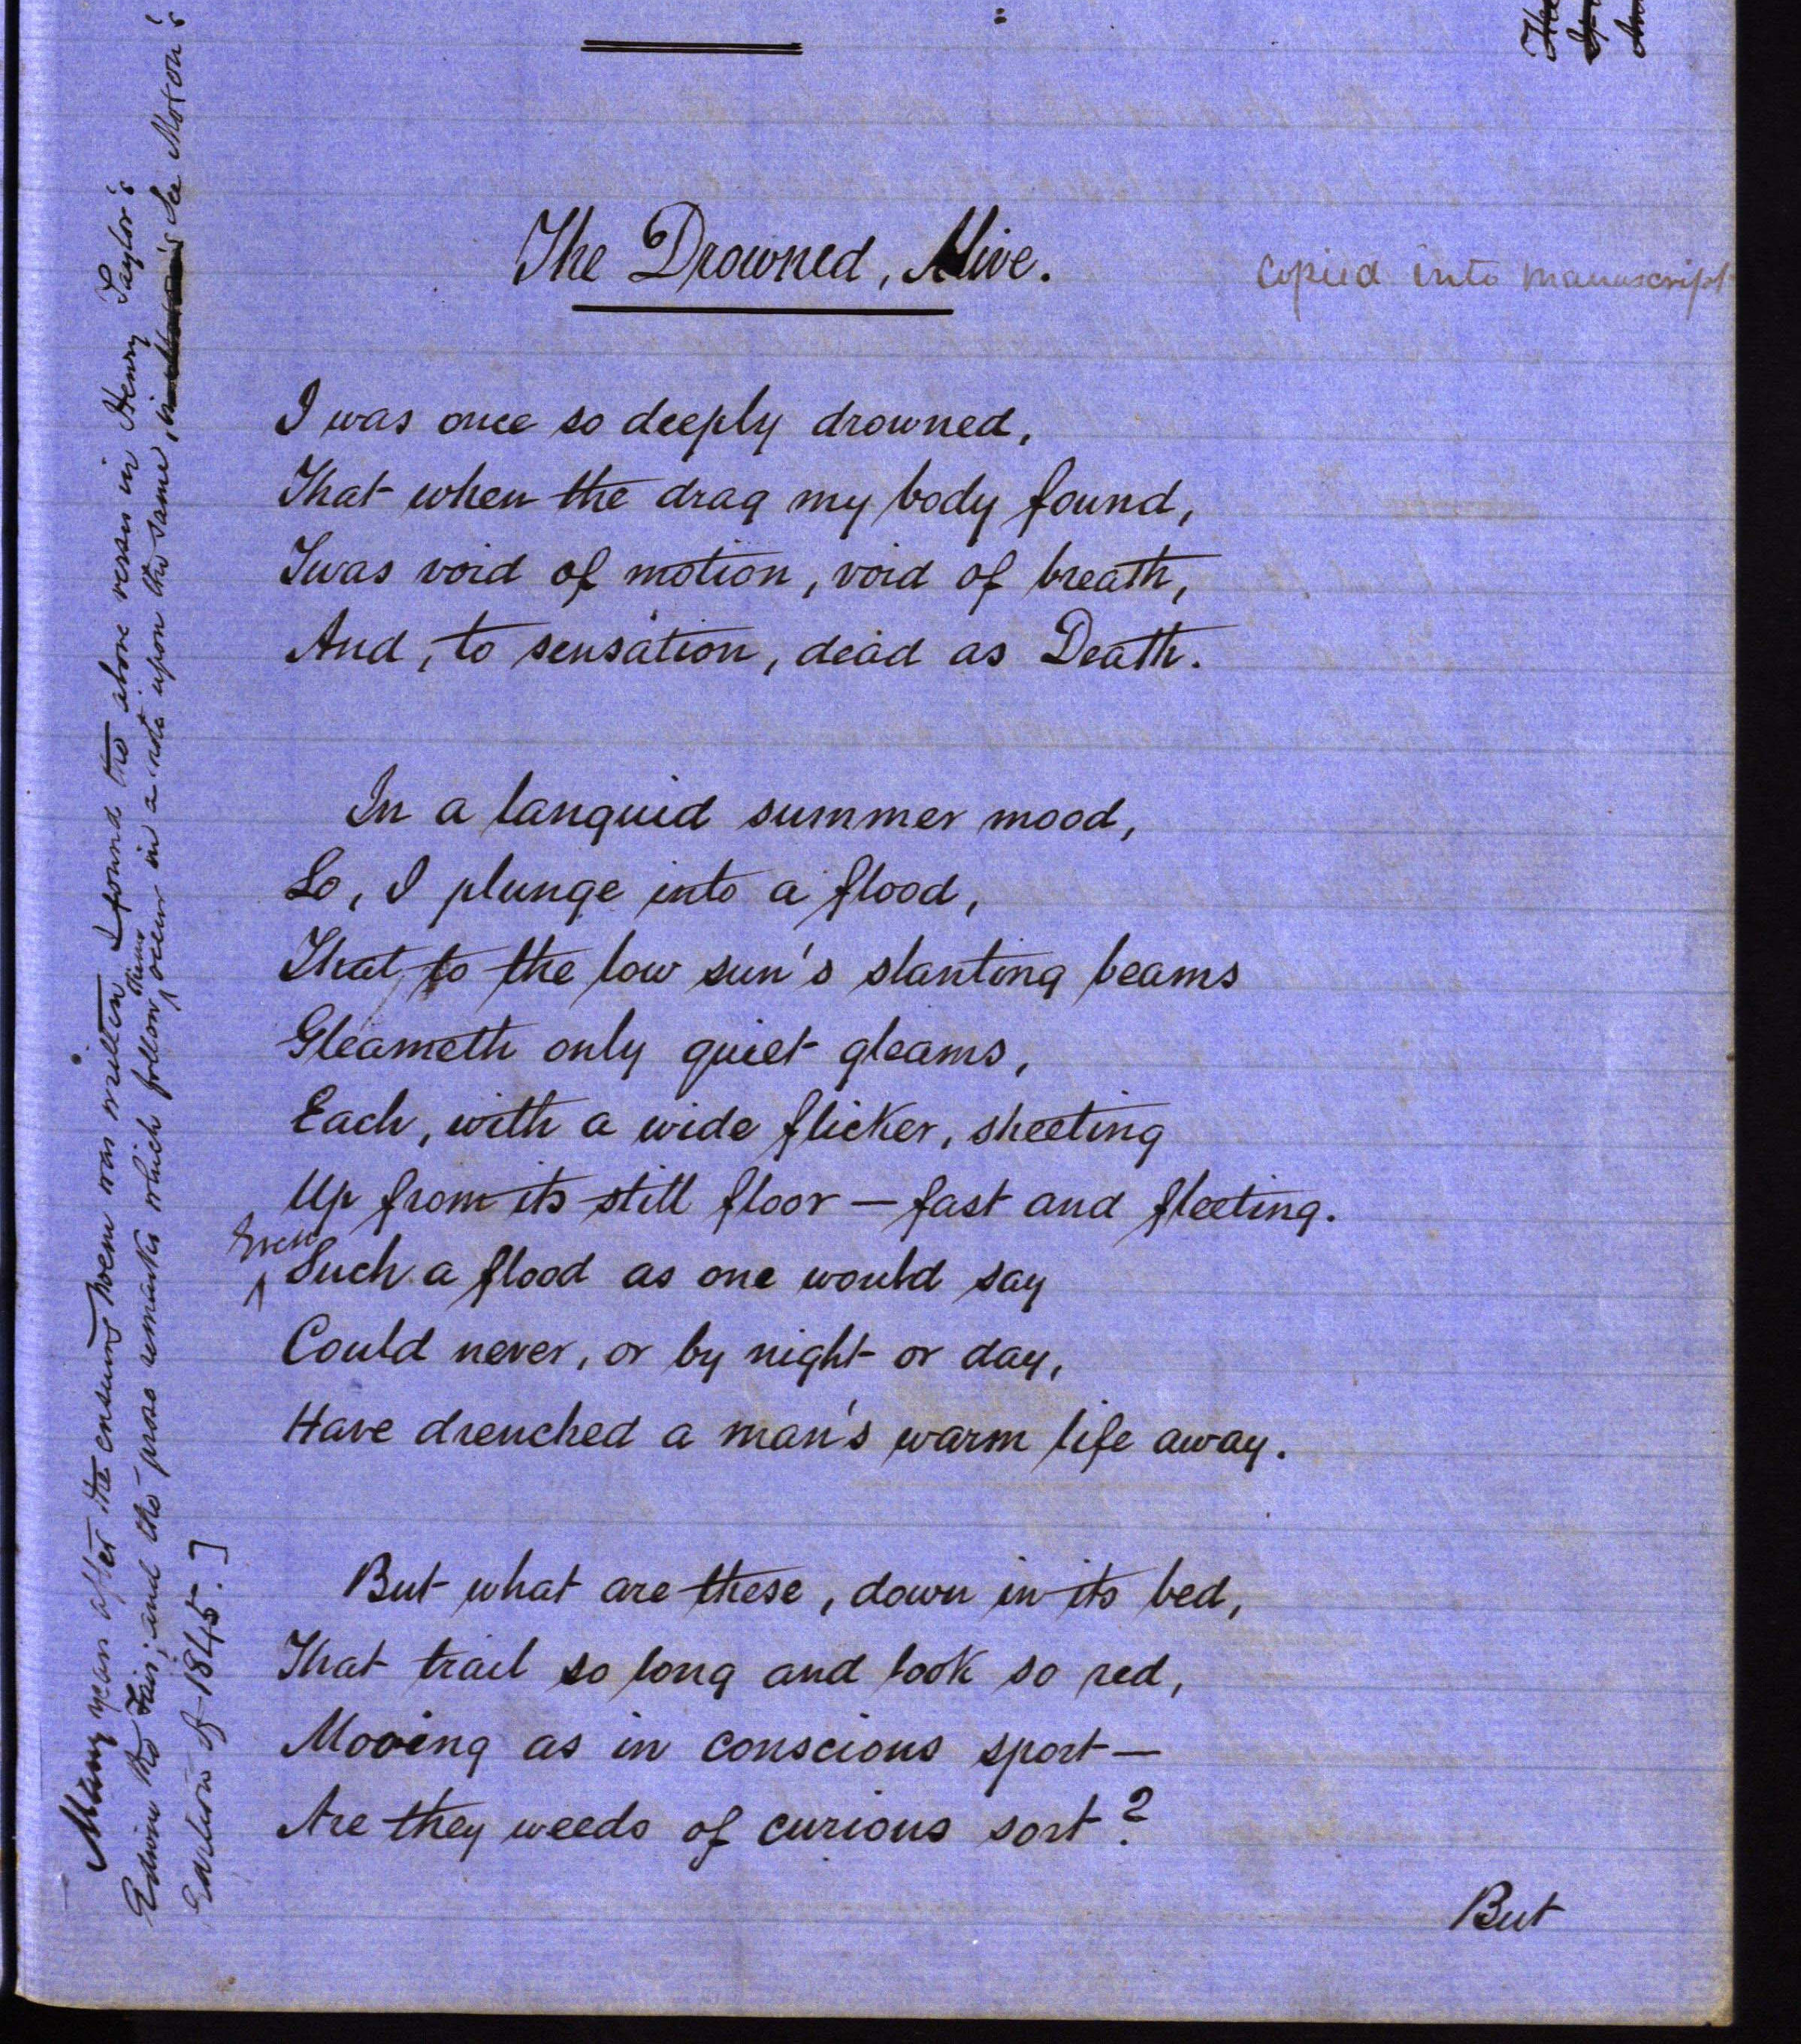 The Drowned, Alive.
Copied into manuscript
I was once so deeply drowned,
That when the drag my body found,
I was void of motion, void of breath,
And, to sensation, dead as Death.
In a languid summer mood,
Lo, I plunge into a flood,
That, to the low sun's slanting beams
Gleameth only quiet gleams,
Each, with a wide flicker, sheeting
Up from its still floor — fast and fleeting.
Even Such a flood as one would say
Could never, or by night or day,
Have drenched a man's warm life away.
But what are these, down in its bed,
That trail so long and look so red,
Mooing as in conscious sport —
Are they weeds of curious sort?
But
Many years after the ensuing poem was written I found the above verses in Henry Taylor's
Edwin the Fair; and the prose remarks which follow them occur in a note upon the same, See Moxon's
Edition of 1845.]
The